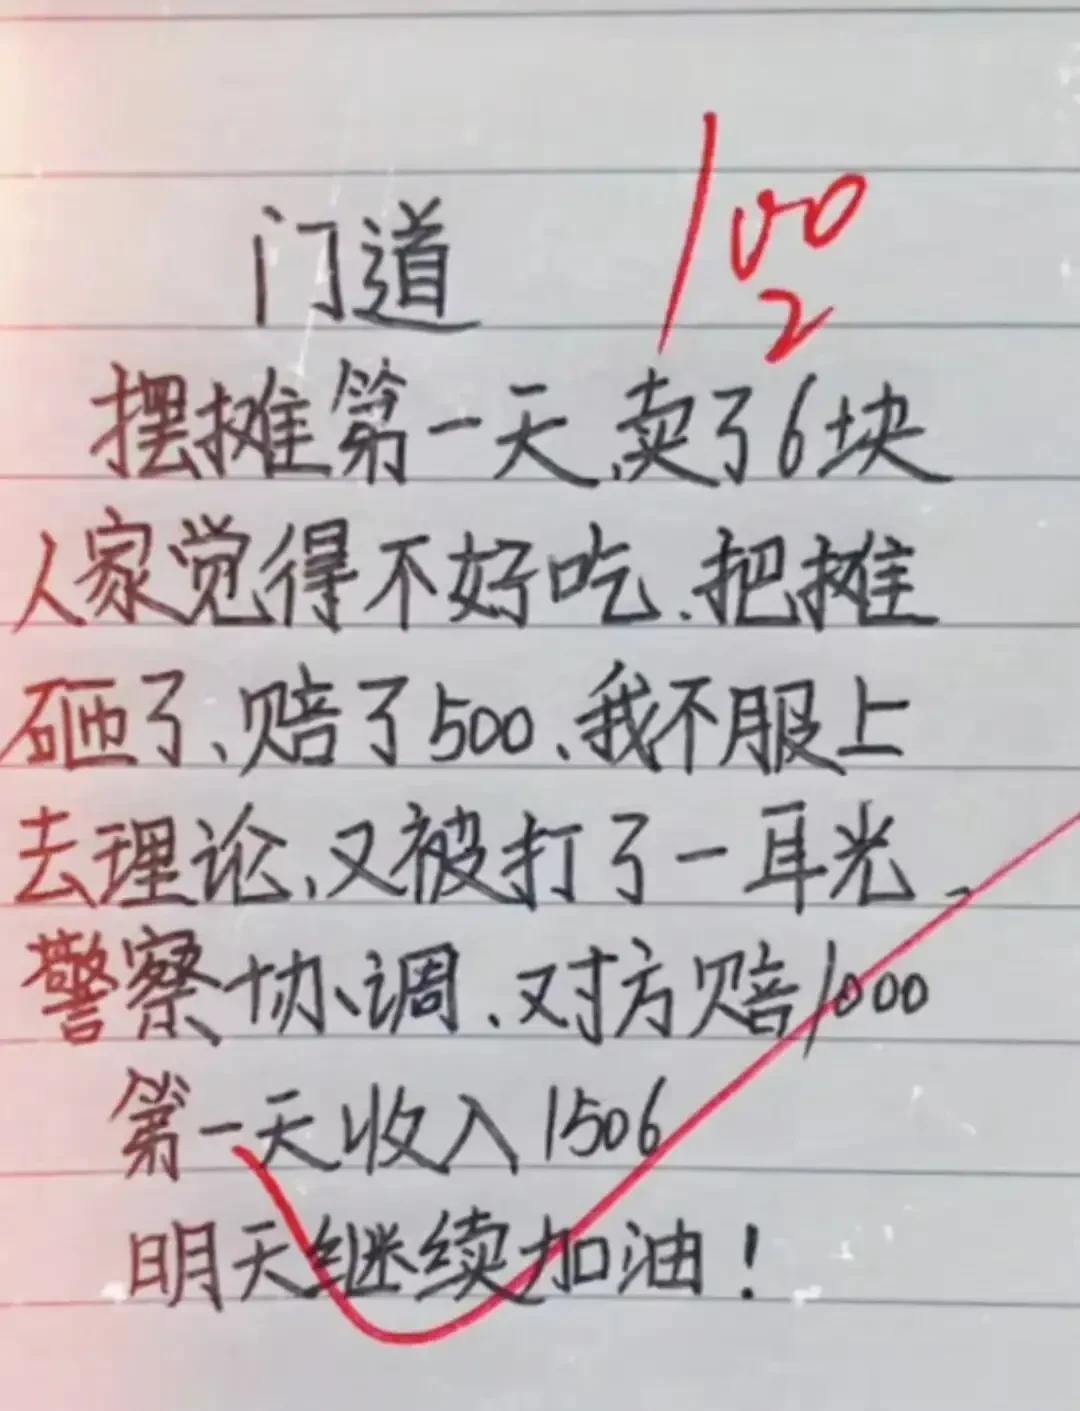 门道
100
2
摆摊第一天、卖了6块
人家觉得不好吃、把摊
砸了、赔了500、我不服上
去理论、又被打了一耳光、
警察协调、对方赔1000
第一天收入1506
明天继续加油！